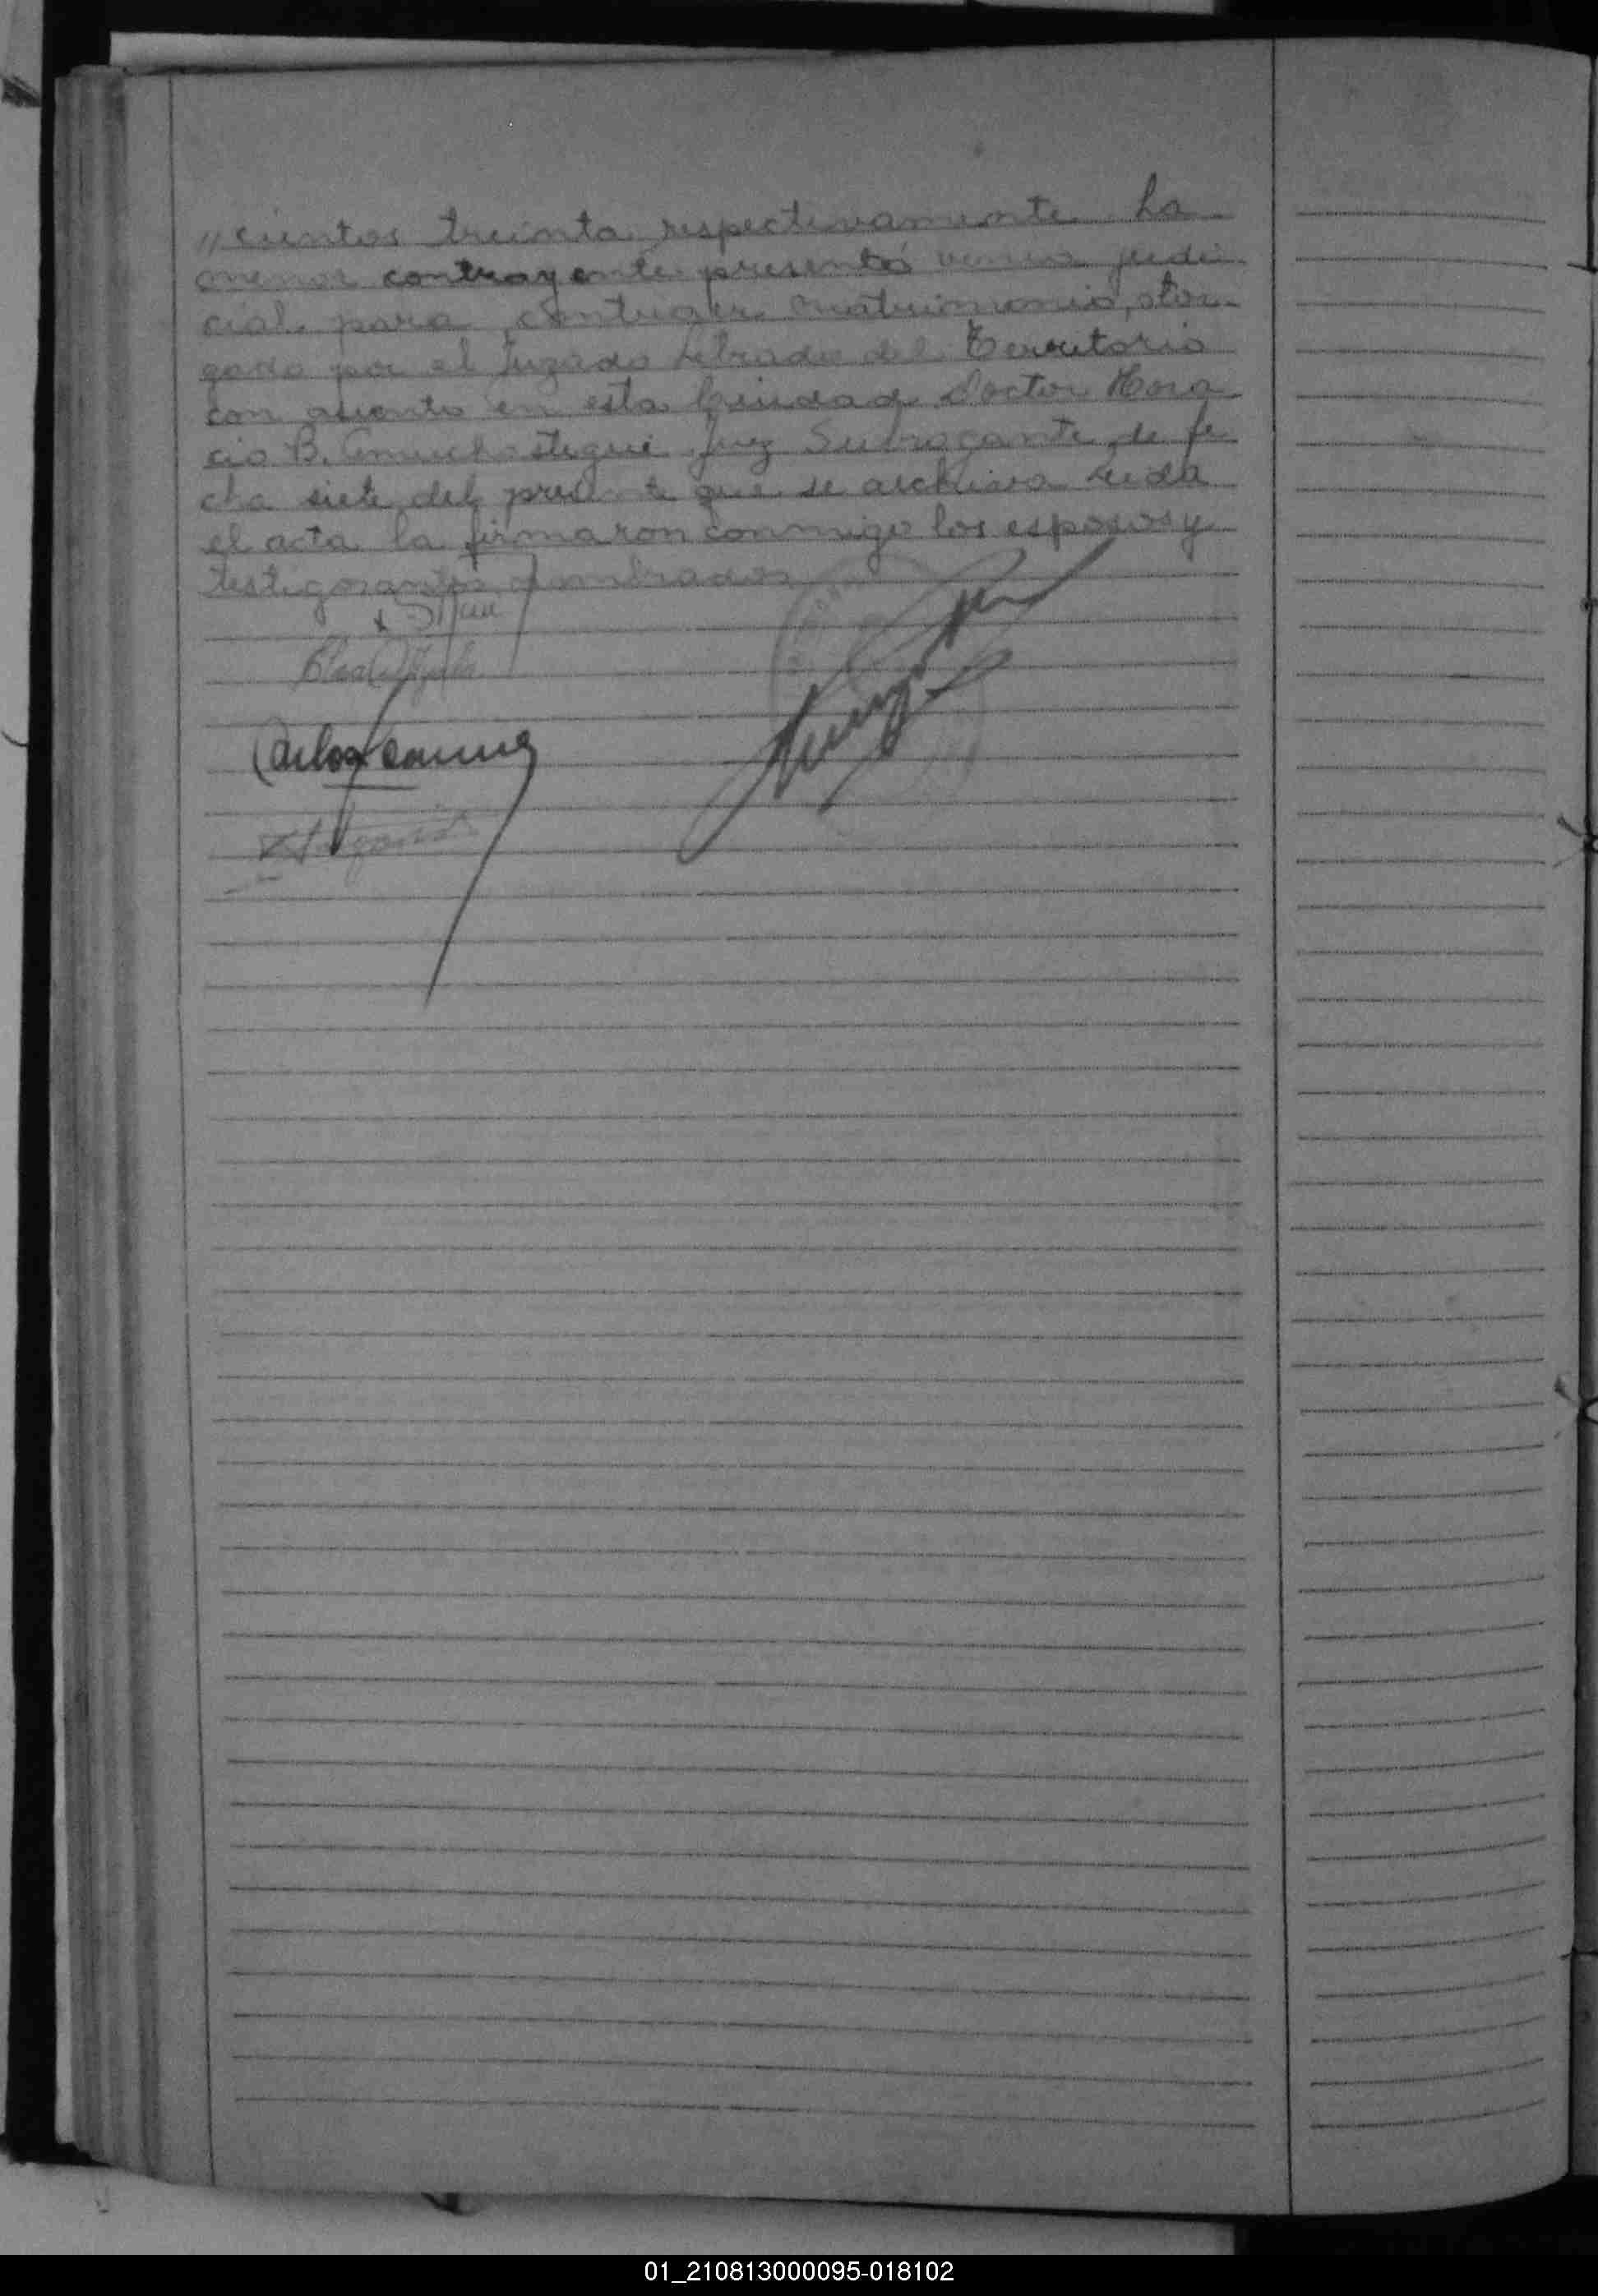 "cientos treinta respectivamente. La
menor contrayente presentó venia judi
cial para contraer matrimonio, otor
gado por el Juzgado Letrado del Territorio
con asiento en esta Ciudad Doctor Hora
cio B. Amuchastegui Juez Subrogante de fe
cha siete del presente que se archiva Leida
el acta la firmaron conmigo los esposos y
testigos antes nombrados
Carlos
01_210813000095-018102